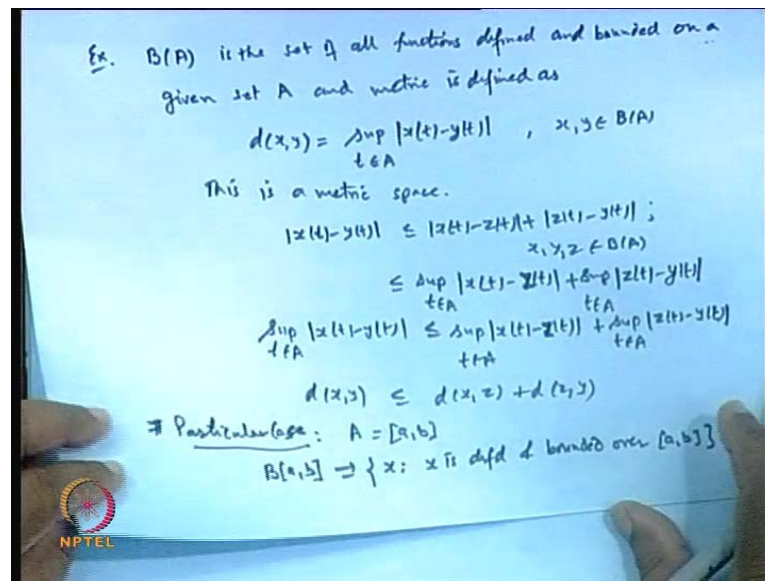 Ex. B(A) is the set of all functions defined and bounded on a
given set A and metric is defined as
d(x,y) = sup |x(t)-y(t)| , x,y ∈ B(A)
t∈A
This is a metric space.
|x(t)-y(t)| ≤ |x(t)-z(t)| + |z(t)-y(t)| ;
x,y,z ∈ B(A)
≤ sup |x(t)-z(t)| + sup |z(t)-y(t)|
t∈A t∈A
sup |x(t)-y(t)| ≤ sup |x(t)-z(t)| + sup |z(t)-y(t)|
t∈A t∈A t∈A
d(x,y) ≤ d(x,z) + d(z,y)
# Particular Case: A = [a,b]
B[a,b] → {x: x is defd & bounded over [a,b]}
NPTEL